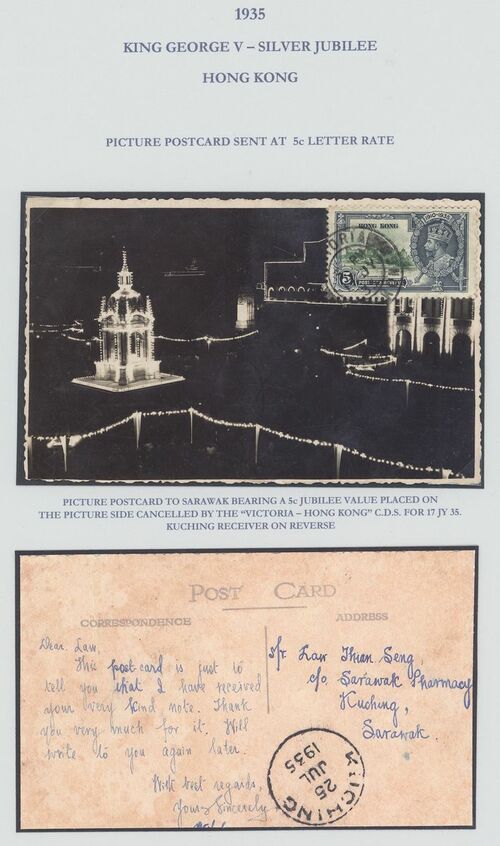 1935
KING GEORGE V – SILVER JUBILEE
HONG KONG
PICTURE POSTCARD SENT AT 5c LETTER RATE
1910-1935
HONG KONG
VICTORIA
5c
POSTAGE & REVENUE
PICTURE POSTCARD TO SARAWAK BEARING A 5c JUBILEE VALUE PLACED ON
THE PICTURE SIDE CANCELLED BY THE "VICTORIA – HONG KONG" C.D.S. FOR 17 JY 35.
KUCHING RECEIVER ON REVERSE
POST CARD
CORRESPONDENCE
ADDRESS
Dear Law,
This post-card is just to
tell you that I have received
your very kind note. Thank
you very much for it. Will
write to you again later.
With best regards,
Yours Sincerely
Law Thian Seng,
c/o Sarawak Pharmacy
Kuching,
Sarawak.
KUCHING
25
JUL
1935